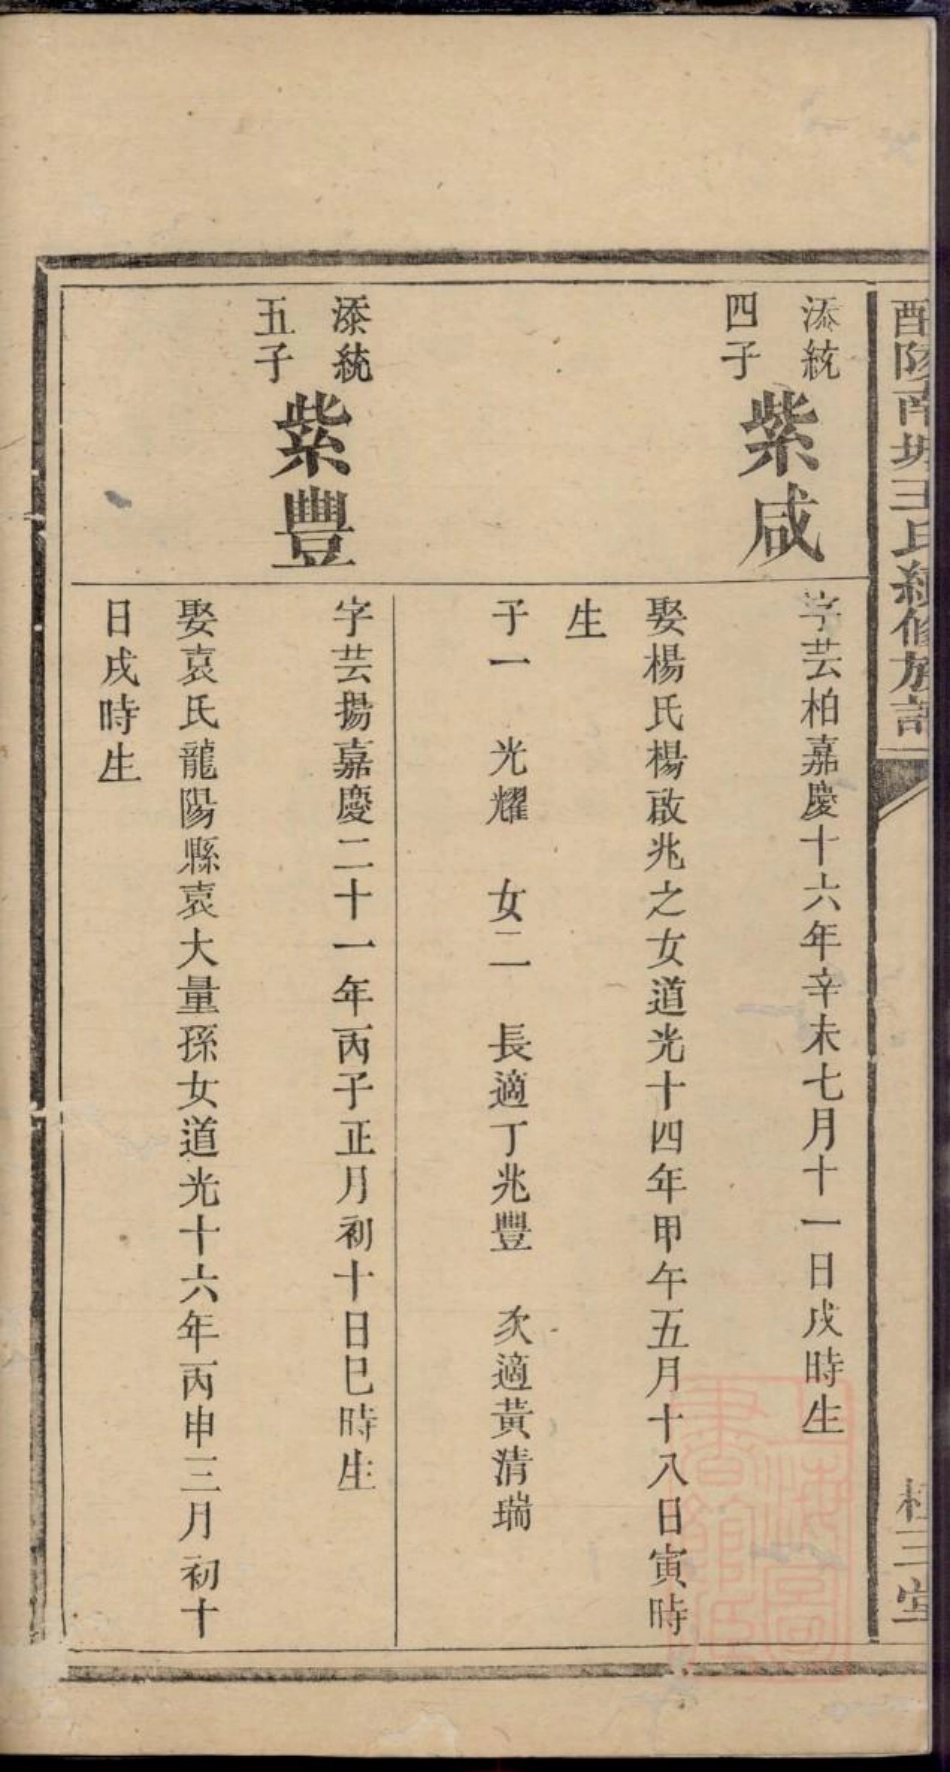 醴陵南城王氏續修族譜
桂三堂
添統
四子
紫咸
字芸柏嘉慶十六年辛未七月十一日戌時生
娶楊氏楊啟兆之女道光十四年甲午五月十八日寅時
生
子一 光耀 女二 長適丁兆豐 次適黃清瑞
添統
五子
紫豐
字芸揚嘉慶二十一年丙子正月初十日巳時生
娶袁氏龍陽縣袁大量孫女道光十六年丙申三月初十
日戌時生